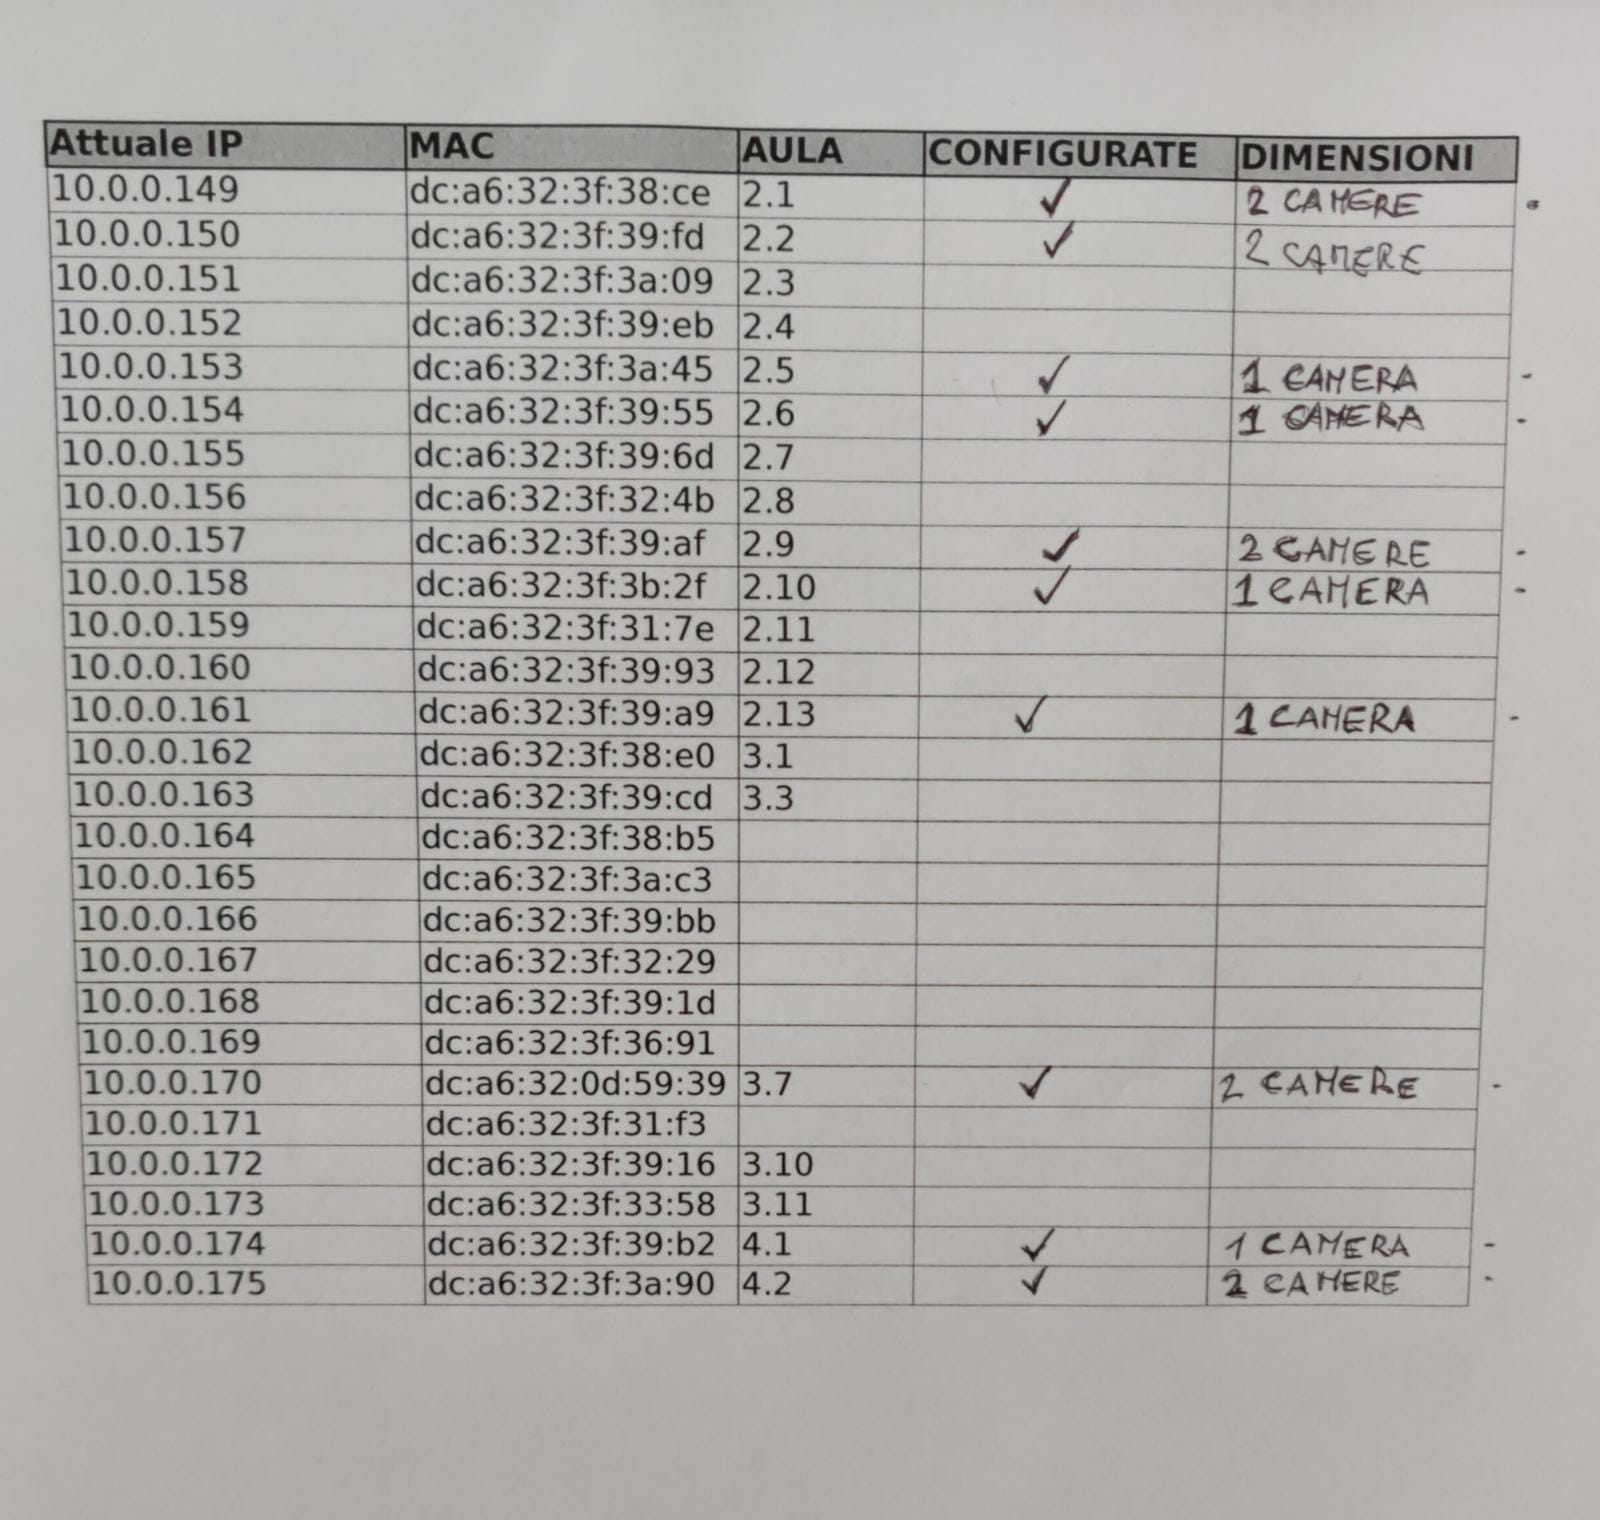 Attuale IP MAC AULA CONFIGURATE DIMENSIONI
10.0.0.149 dc:a6:32:3f:38:ce 2.1 ✓ 2 CAMERE
10.0.0.150 dc:a6:32:3f:39:fd 2.2 ✓ 2 CAMERE
10.0.0.151 dc:a6:32:3f:3a:09 2.3
10.0.0.152 dc:a6:32:3f:39:eb 2.4
10.0.0.153 dc:a6:32:3f:3a:45 2.5 ✓ 1 CAMERA -
10.0.0.154 dc:a6:32:3f:39:55 2.6 ✓ 1 CAMERA -
10.0.0.155 dc:a6:32:3f:39:6d 2.7
10.0.0.156 dc:a6:32:3f:32:4b 2.8
10.0.0.157 dc:a6:32:3f:39:af 2.9 ✓ 2 CAMERE -
10.0.0.158 dc:a6:32:3f:3b:2f 2.10 ✓ 1 CAMERA -
10.0.0.159 dc:a6:32:3f:31:7e 2.11
10.0.0.160 dc:a6:32:3f:39:93 2.12
10.0.0.161 dc:a6:32:3f:39:a9 2.13 ✓ 1 CAMERA -
10.0.0.162 dc:a6:32:3f:38:e0 3.1
10.0.0.163 dc:a6:32:3f:39:cd 3.3
10.0.0.164 dc:a6:32:3f:38:b5
10.0.0.165 dc:a6:32:3f:3a:c3
10.0.0.166 dc:a6:32:3f:39:bb
10.0.0.167 dc:a6:32:3f:32:29
10.0.0.168 dc:a6:32:3f:39:1d
10.0.0.169 dc:a6:32:3f:36:91
10.0.0.170 dc:a6:32:0d:59:39 3.7 ✓ 2 CAMERE -
10.0.0.171 dc:a6:32:3f:31:f3
10.0.0.172 dc:a6:32:3f:39:16 3.10
10.0.0.173 dc:a6:32:3f:33:58 3.11
10.0.0.174 dc:a6:32:3f:39:b2 4.1 ✓ 1 CAMERA -
10.0.0.175 dc:a6:32:3f:3a:90 4.2 ✓ 2 CAMERE -